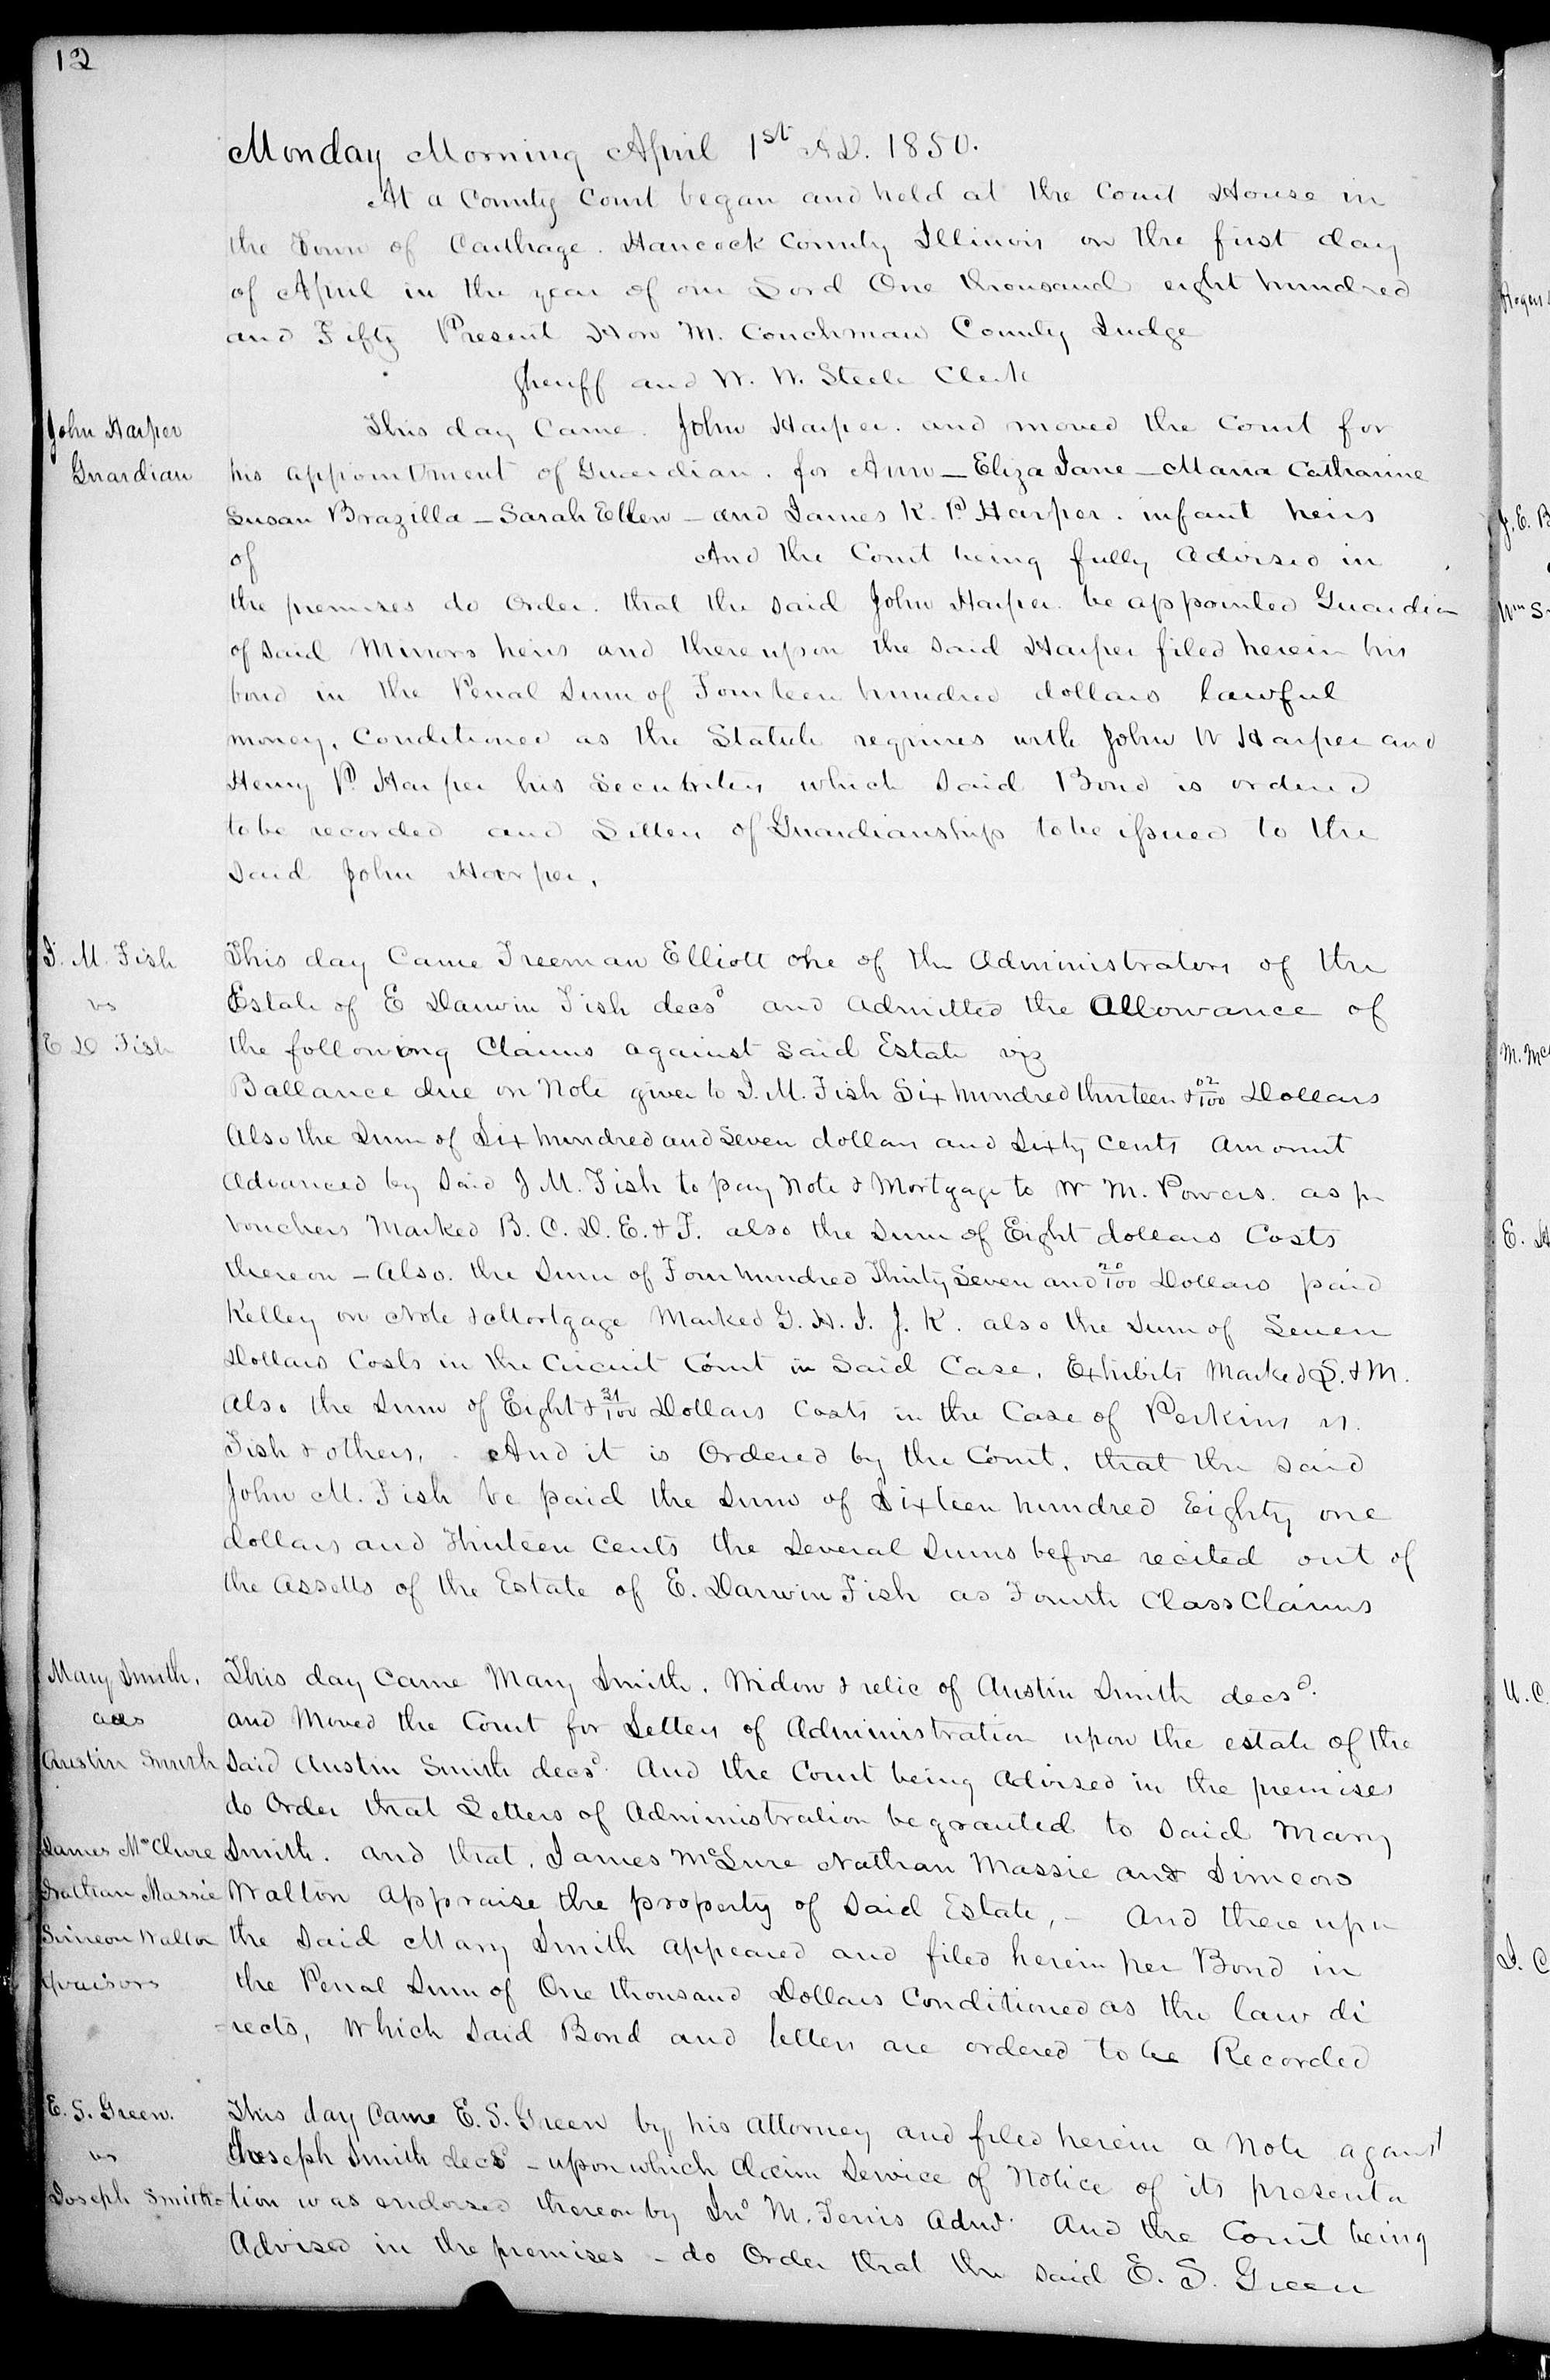 12
Monday Morning April 1st A.D. 1850.
At a County Court began and held at the Court House in
the Town of Carthage. Hancock County Illinois on the first day
of April in the year of our Lord One thousand eight hundred
and Fifty Present Hon M. Couchman County Judge
Sheriff and W. W. Steele Clerk
John Harper
Guardian
This day Came. John Harper. and moved the Court for
his appointment of Guardian. for Ann – Eliza Jane – Maria Catharine
Susan Brazilla – Sarah Ellen – and James K. P. Harper. infant heirs
of And the Court being fully advised in
the premises do Order. that the said John Harper. be appointed Guardian
of said Minors heirs and thereupon the said Harper filed herein his
bond in the Penal Sum of Fourteen hundred dollars lawful
money, Conditioned as the Statute requires with John W Harper and
Henry P. Harper his securities which said Bond is ordered
to be recorded and Letters of Guardianship to be issued to the
said John Harper.
J. M. Fish
vs
E D Fish
This day Came Freeman Elliott one of the Administrators of the
Estate of E Darwin Fish decsd and admitted the Allowance of
the following Claims against said Estate viz
Ballance due on Note given to J. M. Fish Six hundred thirteen & 02/100 Dollars
Also the Sum of Six hundred and Seven dollars and Sixty Cents amount
advanced by said J M. Fish to pay Note & Mortgage to W M. Powers. as pr
vouchers Marked B. C. D. E. & F. also the Sum of Eight dollars Costs
thereon – Also. the Sum of Four hundred Thirty Seven and 20/100 Dollars paid
Kelley on Note & Mortgage Marked G. H. I. J. K. also the Sum of Seven
Dollars Costs in the Circuit Court in said Case. Exhibits Marked L. & M.
also the Sum of Eight & 31/100 Dollars Costs in the Case of Perkins vs.
Fish & others. And it is Ordered by the Court. that the said
John M. Fish be paid the Sum of Sixteen hundred Eighty one
dollars and thirteen Cents the Several Sums before recited out of
the Assetts of the Estate of E. Darwin Fish as Fourth Class Claims
Mary Smith.
ads
Austin Smith
James McClure
Nathan Massie
Simeon Walton
This day Came Mary Smith. Widow & relic of Austin Smith decsd.
and Moved the Court for Letters of Administration upon the estate of the
said Austin Smith decsd. And the Court being advised in the premises
do Order that Letters of Administration be granted to said Mary
Smith. and that. James McLure Nathan Massie and Simeon
Walton appraise the property of said Estate, – And there upon
the said Mary Smith appeared and filed herein her Bond in
the Penal Sum of One thousand Dollars Conditioned as the law di
-rects, Which said Bond and letters are ordered to be Recorded
E. S. Green.
vs
Joseph Smith
This day Came E. S. Green by his attorney and filed herein a Note against
Joseph Smith decsd – upon which Claim Service of Notice of its presenta
-tion was endorsed thereon by Jno M. Ferris Admr. And the Court being
Advised in the premises – do Order that the said E. S. Green
J. E. B
Wm S
M. Mc
E. H